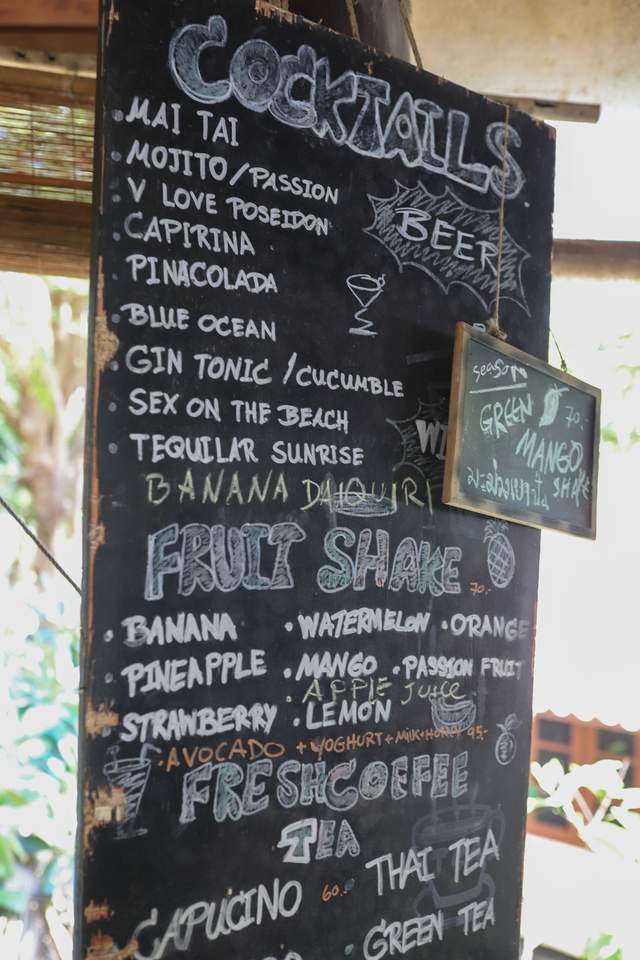 COCKTAILS
MAI TAI
MOJITO/PASSION
V LOVE POSEIDON
CAPIRINA
BEER
PINACOLADA
BLUE OCEAN
GIN TONIC / CUCUMBLE
SEX ON THE BEACH
TEQUILAR SUNRISE
BANANA DAIQUIRI
season
GREEN 70.-
MANGO
SHAKE
FRUIT SHAKE 70.-
BANANA • WATERMELON • ORANGE
PINEAPPLE • MANGO • PASSION FRUIT
APPLE JUICE
STRAWBERRY • LEMON
AVOCADO + YOGHURT + MILK + HONEY 95.-
FRESHCOFFEE
TEA
CAPUCINO 60.- THAI TEA
GREEN TEA